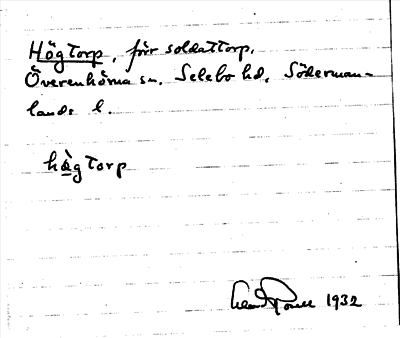 Högtorp, förr soldattorp,
Överenhörna sn. Selebo hd. Söderman-
lands l.
hògtorp
1932